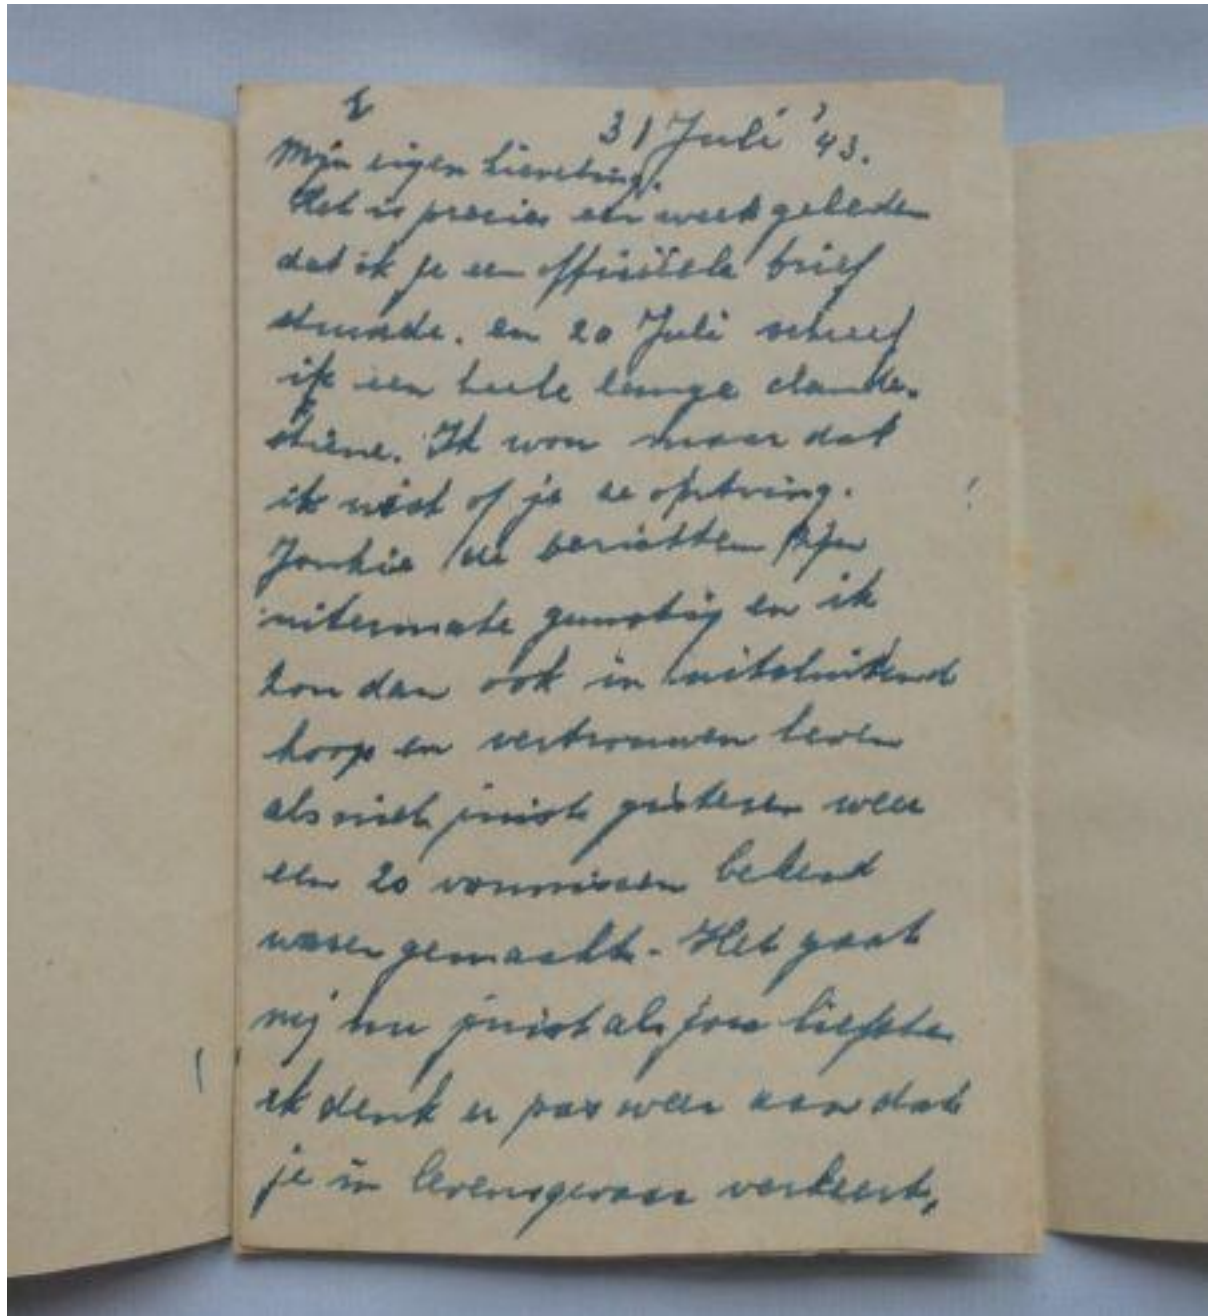 31 Juli '43.
Mijn eigen lieveling.
Het is precies een week geleden
dat ik je een officiëele brief
stuurde. en 20 Juli schreef
ik een heele lange clande-
stiene. Ik wou maar dat
ik wist of je ze ontving.
Jonkie de berichten zijn
uitermate gunstig en ik
zou dan ook in uitsluitend
hoop en vertrouwen leven
als niet juist gisteren weer
een 20 vonnissen bekend
waren gemaakt. Het gaat
mij nu juist als jou liefste
ik denk er pas weer aan dat
je in levensgevaar verkeert,